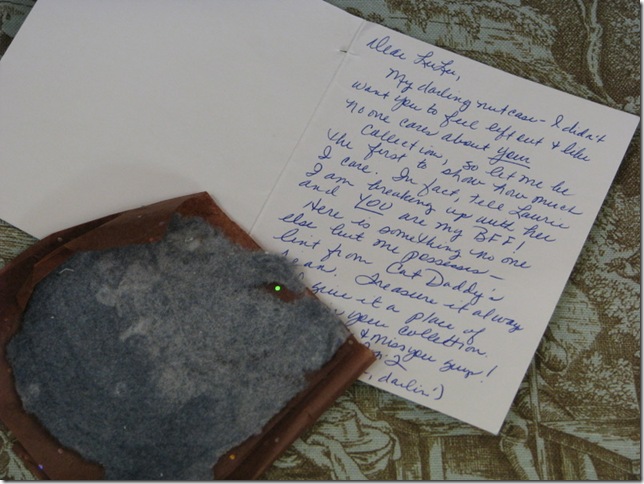 Dear LuLu,
My darling nutcase - I didn't
want you to feel left out & like
no one cares about your
collection, so let me be
the first to show how much
I care. In fact, tell Laurie
I am breaking up with her
and YOU are my BFF!
Here is something no one
else but me possesses -
lint from Cat Daddy's
Treasure it always
give it a place of
your collection.
& miss you guys!
, darlin')